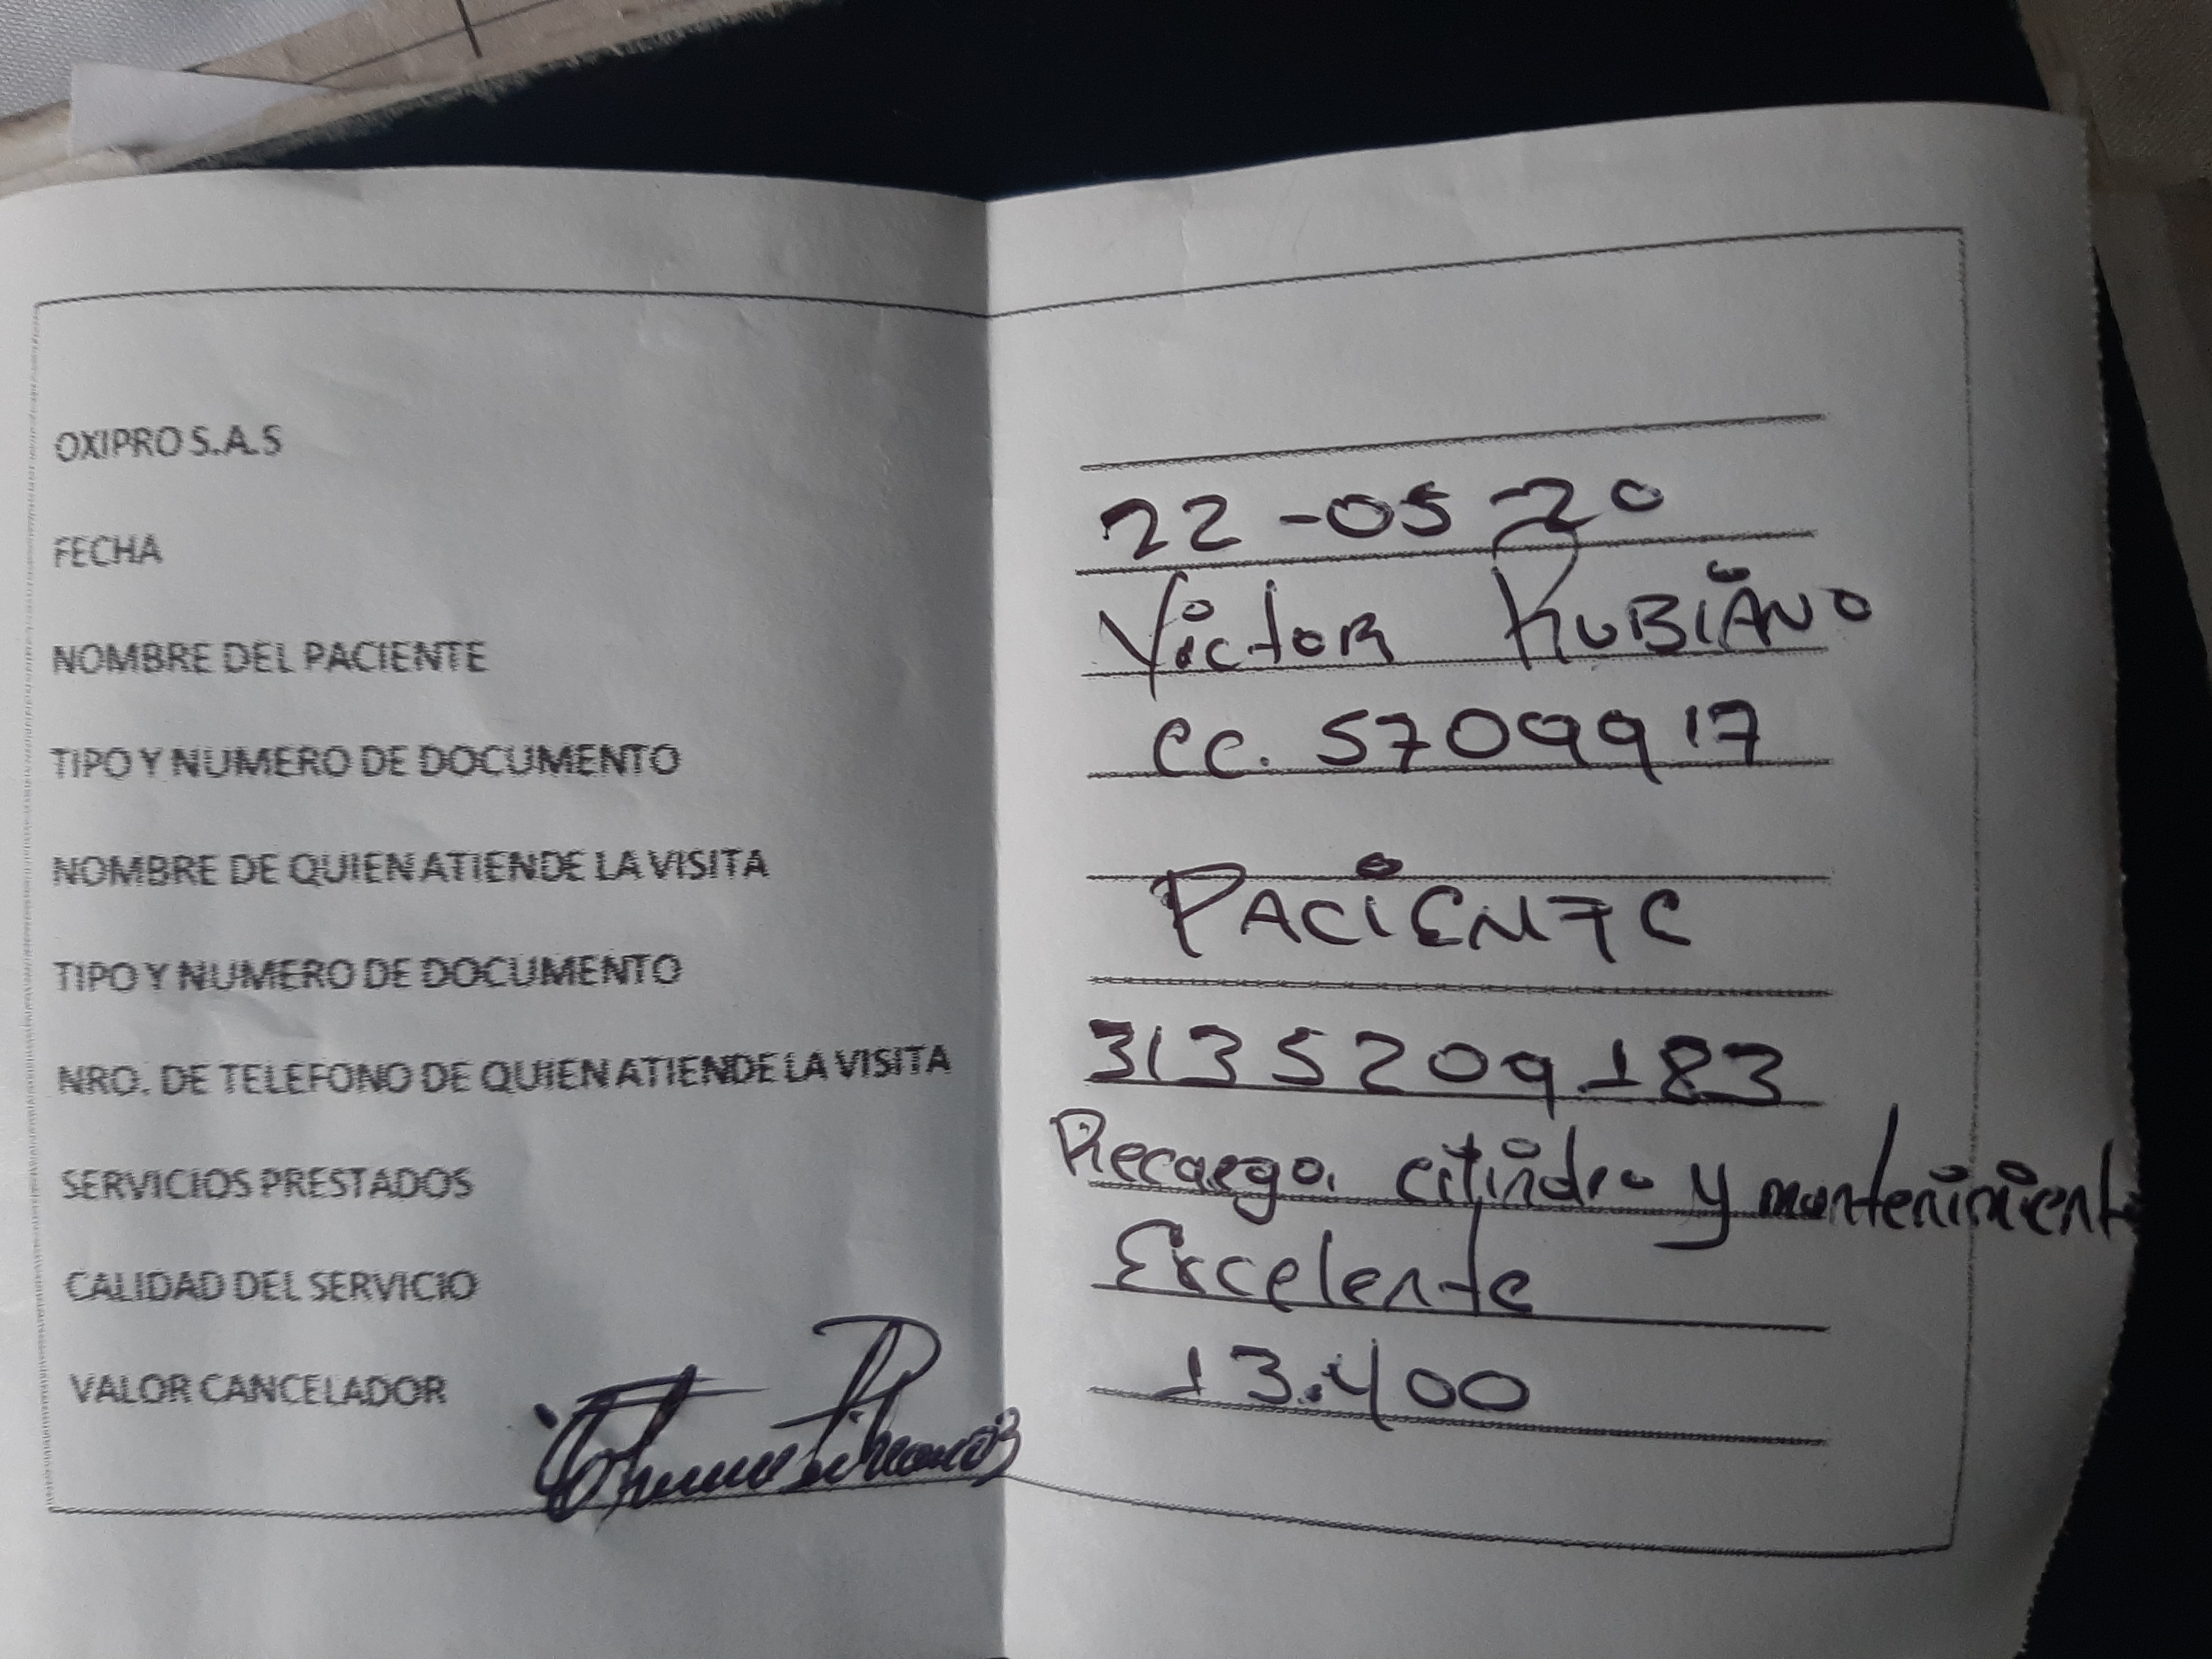 OXIPRO S.A.S
FECHA 22-05-20
NOMBRE DEL PACIENTE Victor RUBIANO
TIPO Y NUMERO DE DOCUMENTO CC. 5709917
NOMBRE DE QUIEN ATIENDE LA VISITA
PACIENTE
TIPO Y NUMERO DE DOCUMENTO
NRO. DE TELEFONO DE QUIEN ATIENDE LA VISITA 3135209183
SERVICIOS PRESTADOS Recarga cilindro y mantenimient
CALIDAD DEL SERVICIO Excelente
VALOR CANCELADOR 13.400